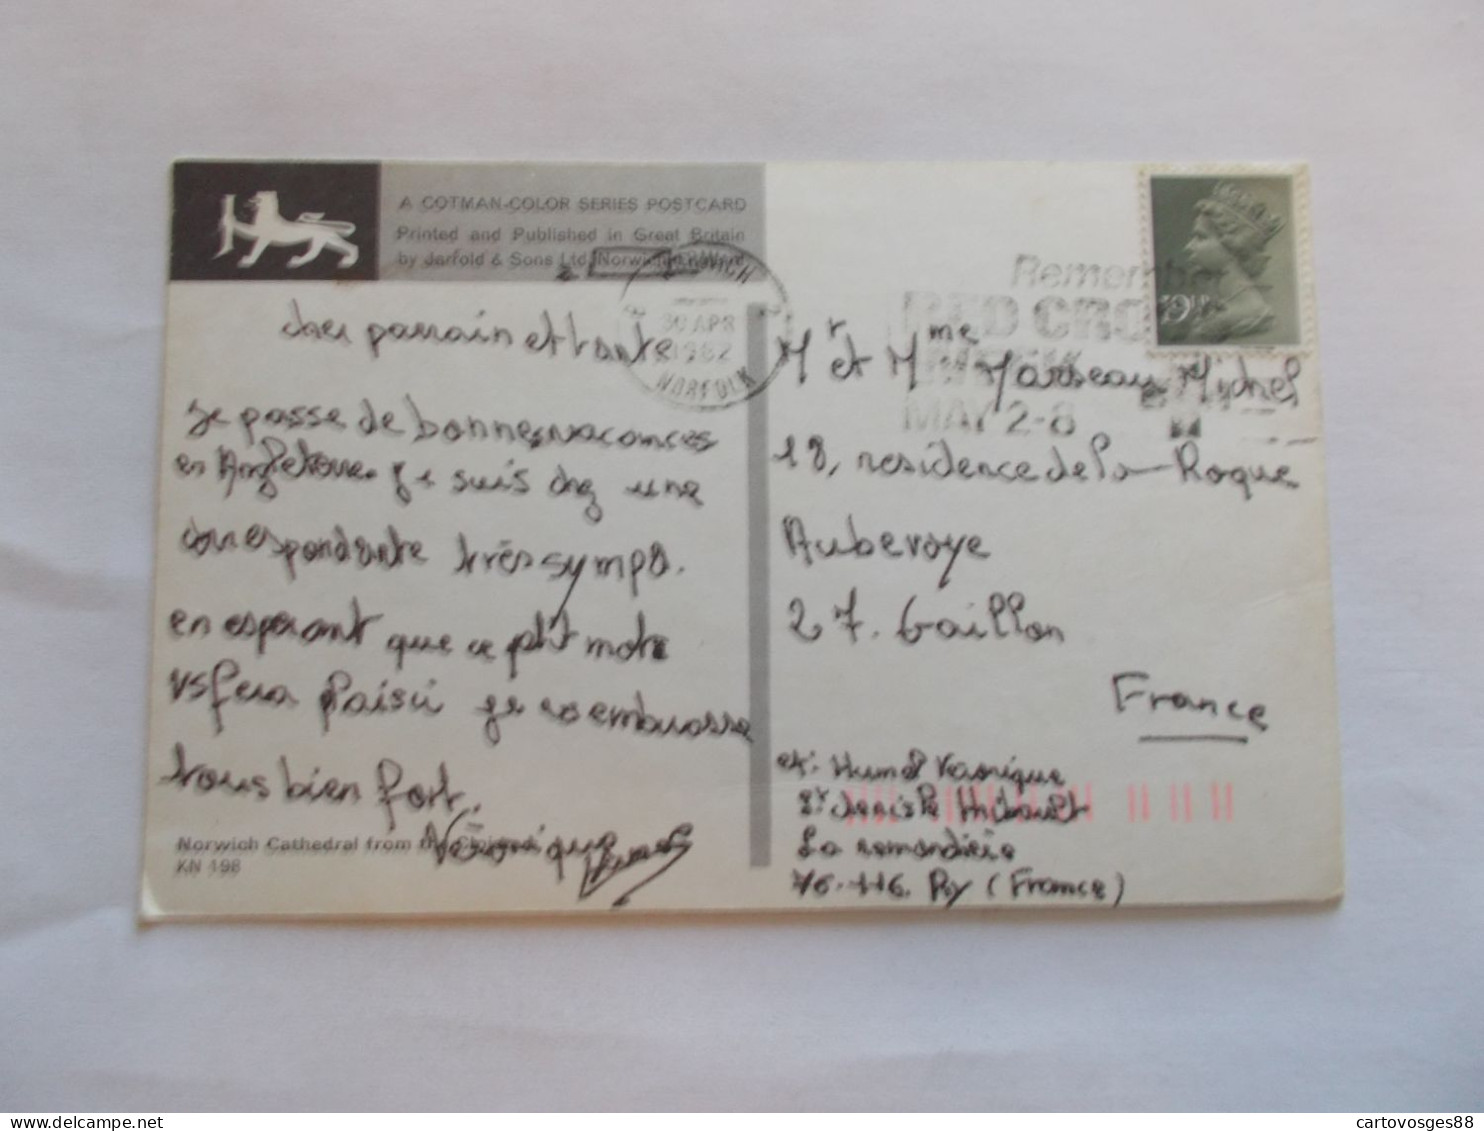 A COTMAN-COLOR SERIES POSTCARD
Printed and Published in Great Britain
by Jarrold & Sons Ltd, Norwich
NORWICH
30 APR
1982
NORFOLK
Remember
RED CRO
WEEK
MAY 2-8
19½P
cher parrain et tante
je passe de bonnes vacances
en Angleterre. Je suis chez une
correspondante très sympa.
en espérant que ce ptit mot
vs fera plaisir je vs embrasse
tous bien fort.
Véronique
Norwich Cathedral from the
KN 198
Mr et Mme Marseau Michel
18, residence de la Roque
Aubevoye
27. Gaillon
France
ex: Humel Veronique
St denis le thiboult
La romandière
76.116. Ry (France)
cartovosges88